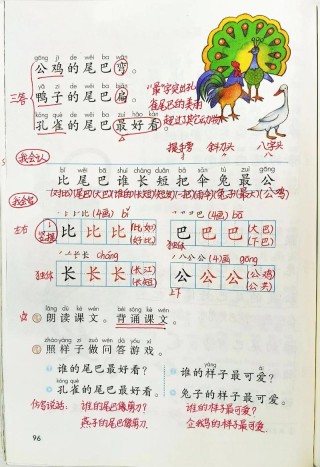 gōng jī de wěi ba wān
公鸡的尾巴弯。
yā zi de wěi ba biǎn
三答 鸭子的尾巴扁。
kǒng què de wěi ba zuì hǎo kàn
孔雀的尾巴最好看。
“最”字突出孔
雀尾巴的美丽
超过了其它动物
提手旁 斜刀头 八字头
我会认
bǐ wěi bā shuí cháng duǎn bǎ sǎn tù zuì gōng
比尾巴谁长短把伞兔最公
(对比)(尾巴)(大巴)(谁的)(长短)(短处)(一把)(雨伞)(兔子)(最大)(公鸡)
我会写
比 (4画) bǐ 巴 (4画) bā
左右 比比比 (比如) (好比) 独体 巴巴巴 (大巴) (下巴)
长 (4画) cháng 公 (4画) gōng
独体 长长长 (长江) (长短) 上下 公公公 (公鸡) (公共)
lǎng dú kè wén bèi sòng kè wén
朗读课文。背诵课文。
zhào yàng zi zuò wèn dá yóu xì
照样子做问答游戏。
谁的尾巴最好看?
kǒng què
孔雀的尾巴最好看。
yàng ài
谁的样子最可爱?
兔子的样子最可爱。
仿写说话: 谁的尾巴像剪刀?
燕子的尾巴像剪刀。
谁的样子最可爱?
企鹅的样子最可爱.
96